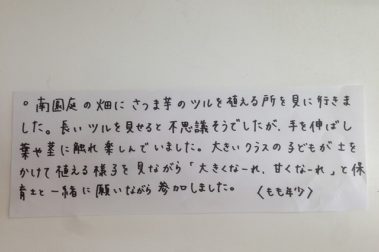 ○南園庭の畑にさつま芋のツルを植える所を見に行きま
した。長いツルを見せると不思議そうでしたが、手を伸ばし
葉や茎に触れ楽しんでいました。大きいクラスの子どもが土を
かけて植える様子を見ながら「大きくなーれ、甘くなーれ」と保
育士と一緒に願いながら参加しました。 〈もも年少〉